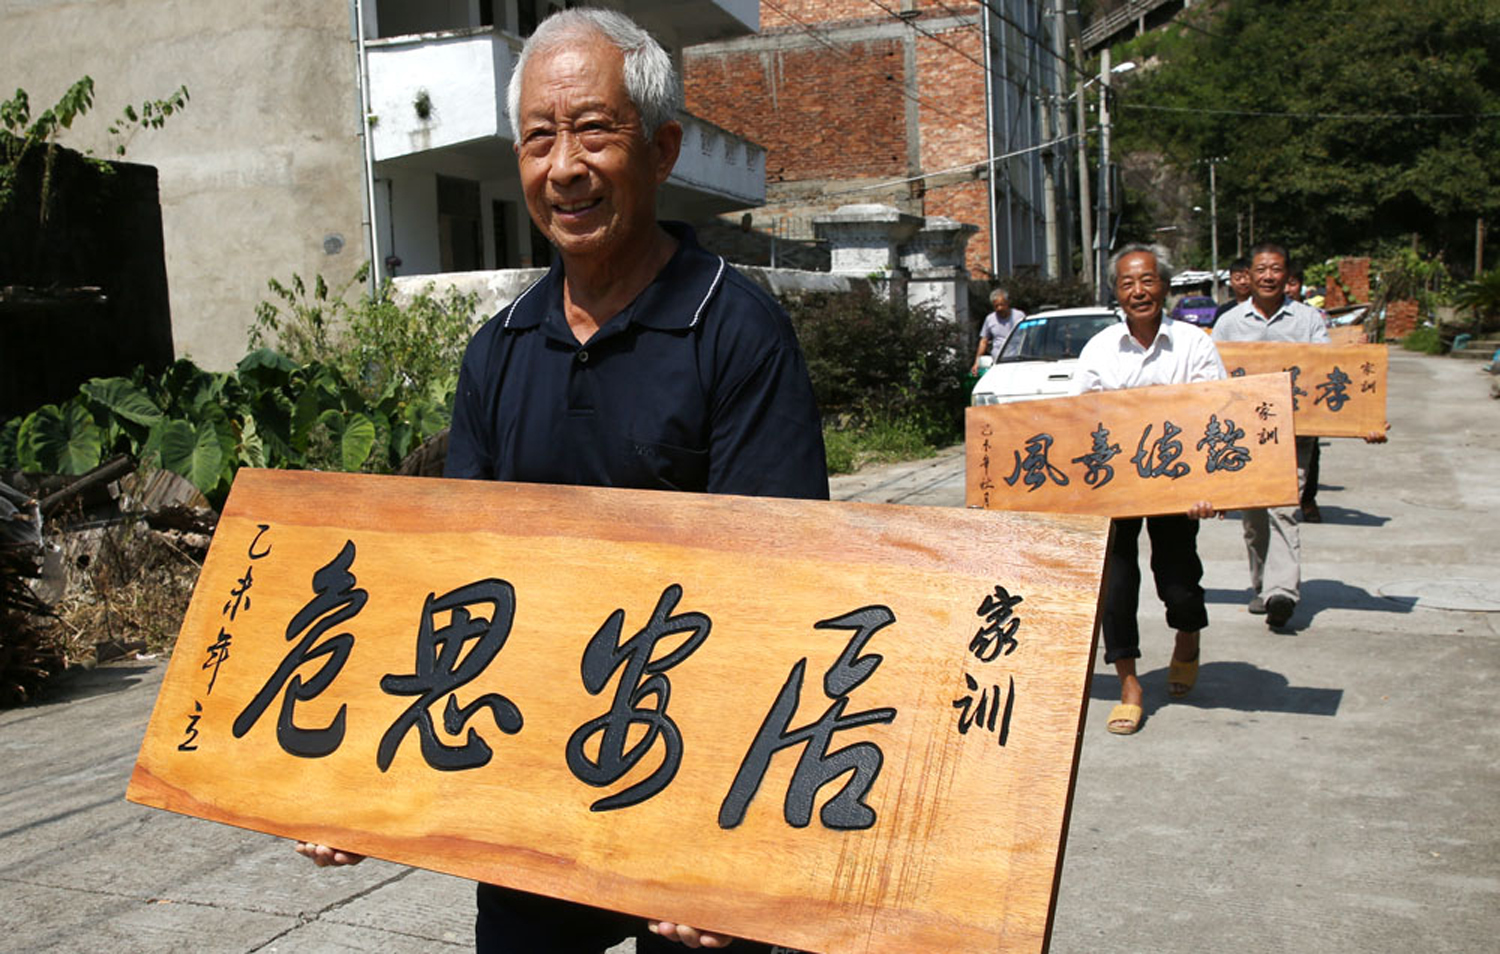 家训
居安思危
乙未年立
家訓
懿德嘉風
乙未年秋月
家訓
孝